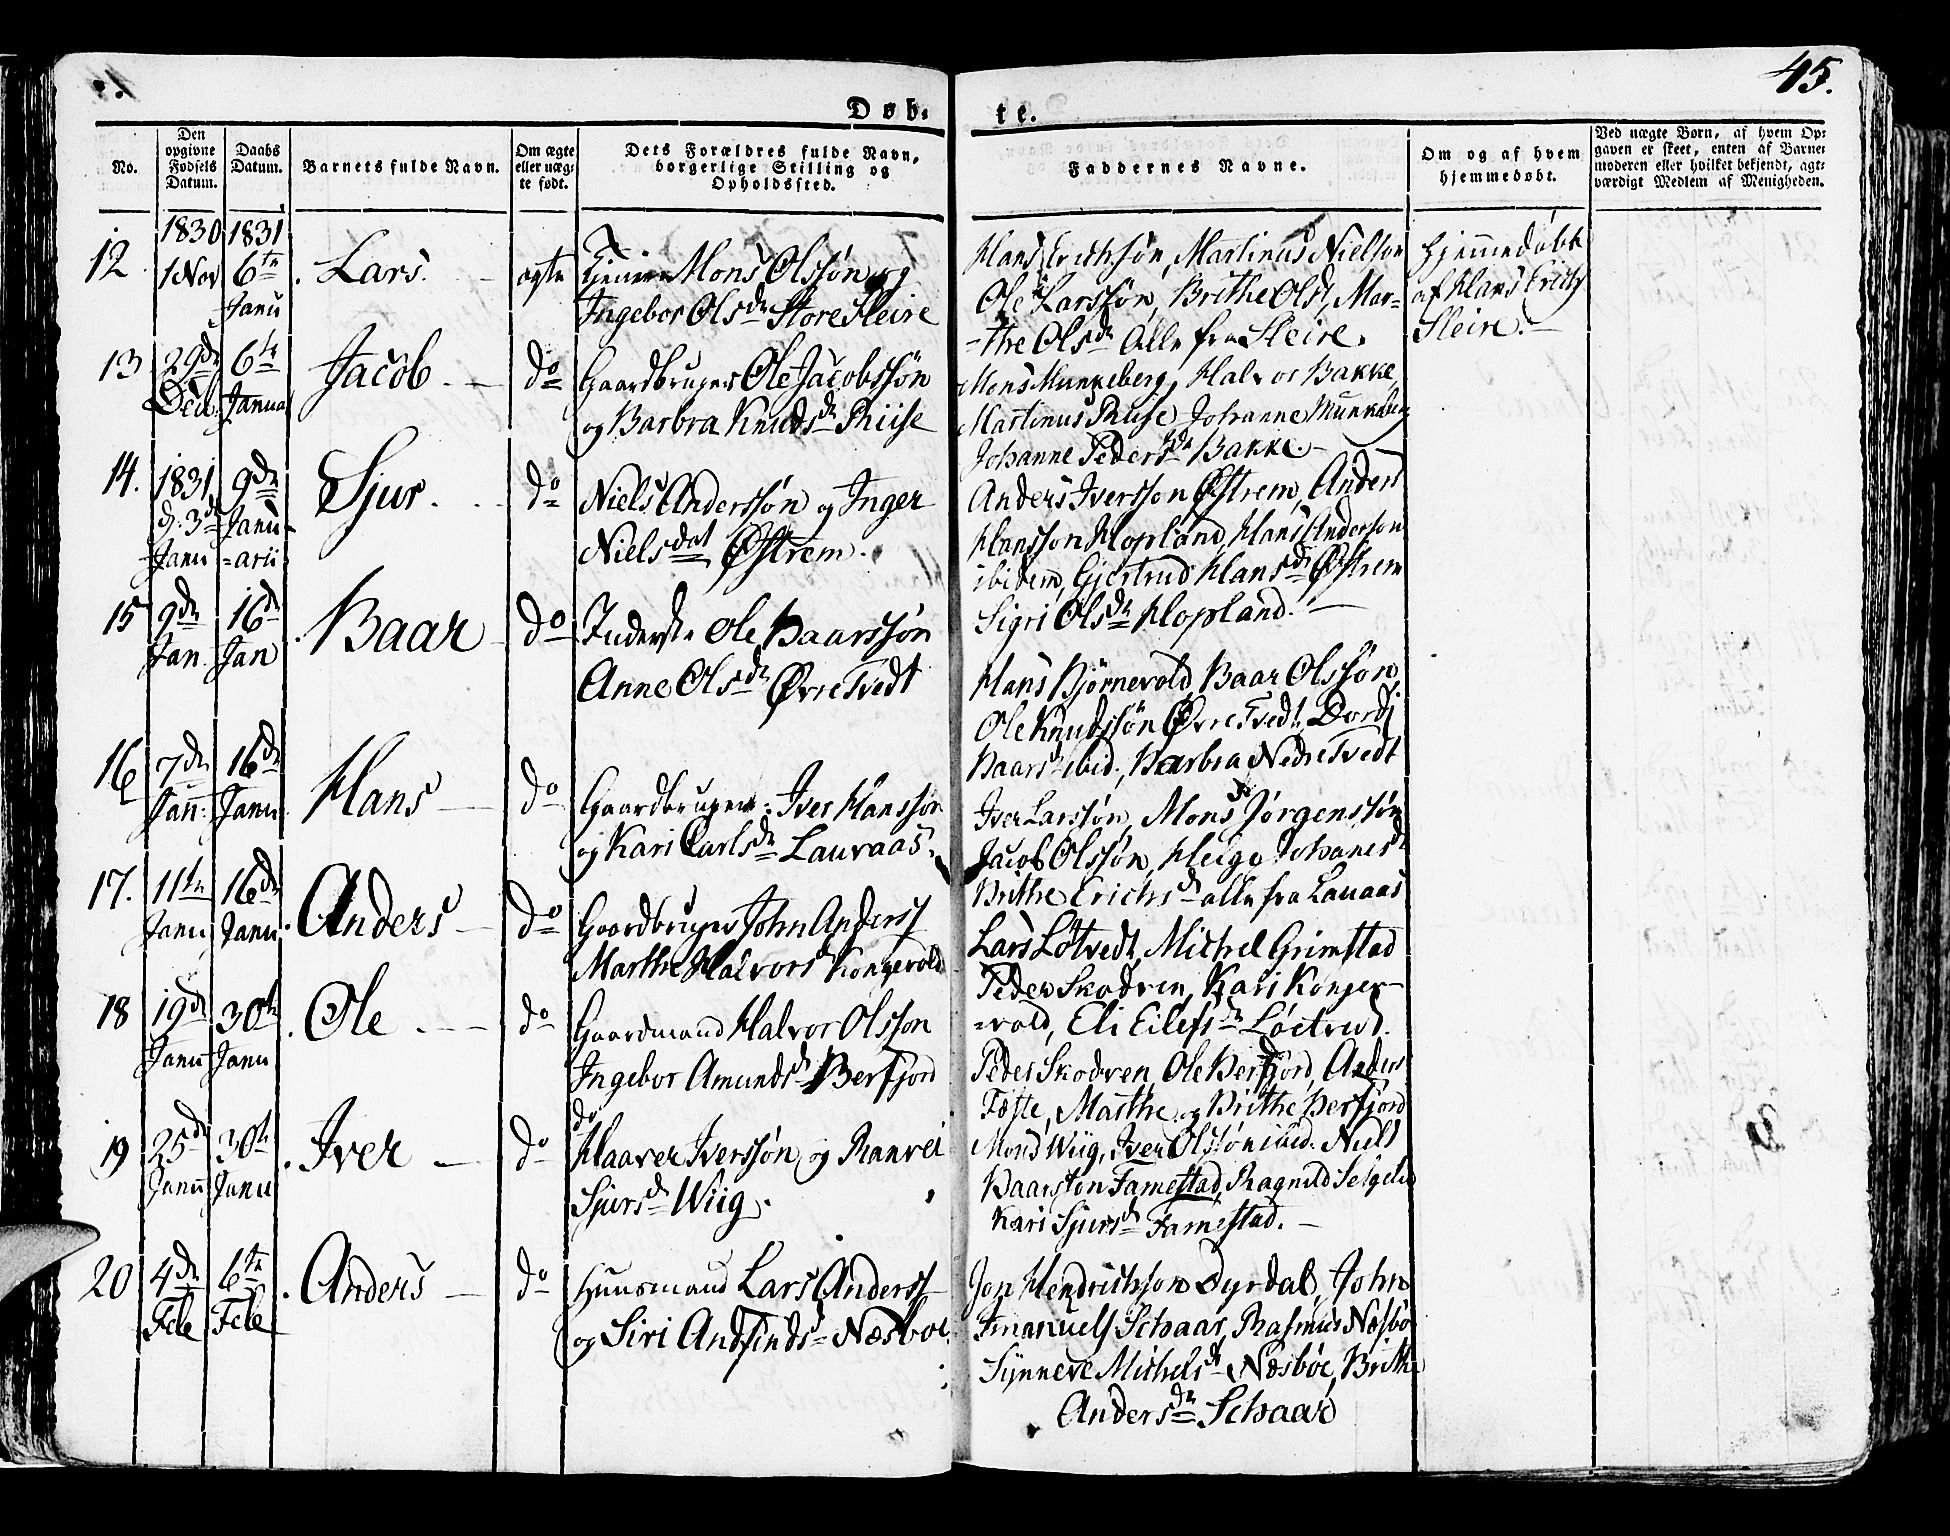 45.
Døb-
te.
No.
Den opgivne Fødsels Datum.
Daabs Datum.
Barnets fulde Navn.
Om ægte eller uæg-
te født.
Dets Forældres fulde Navn,
borgerlige Stilling og
Opholdssted.
Faddernes Navne.
Om og af hvem
hjemmedøbt.
Ved uægte Børn, af hvem Op-
gaven er skeet, enten af Barne-
moderen eller hvilket bekjendt, agt-
værdigt Medlem af Menigheden.
12
1830 1 Nov
1831 6te Janu
Lars.
ægte
Mons Olssøn og
Ingebor Olsdr Store Fleire
Hans Erichsøn, Martinus Nielson
Ole Larssøn, Brithe Olsd, Mar-
-the Olsdr alle fra Fleire.
Hjemmedøbt
af Hans Erichs
Fleire.
13
29de Dec
6te Janua
Jacob
do
Gaardbruger Ole Jacobssøn
og Barbra Knudsdr Riise
Mons Munkeberg, Halvor Bakke,
Martinus Riise Johanne Munkeberg
Johanne Pedersdr Bakke.
14.
1831 d. 3de Janu
9de Janu-
=arii
Sjur.
do
Niels Anderssøn og Inger
Nielsdat Østrem.
Anders Iversson Østrem, Anders
Hansson Hopland, Hans Anderson
ibidem, Gjertrud Hansdr Østrem
Sigri Olsdr Hopland.
15
9de Jan.
16de Jan
Baar
do
Inderste Ole Baarssøn
Anne Olsdr Øvre Tvedt
Hans Bjørnevold, Baar Olssøn,
Ole Knudssøn Øvre Tvedt, Dordj
Baarsd ibid., Barbra Nedre Tvedt
16
7de Jan:
16de Janu
Hans
do
Gaardbruger: Iver Hanssøn
og Kari Carlsdr Lauvaas.
Iver Larssøn, Mons Jørgenssøn
Jacob Olssøn, Helge Johanesdr
Brithe Erichsdr alle fra Lauaas
17.
11te Janu
16de Janu
Anders
do
Gaardbruger John Anderss
Marthe Halvorsd Kongevold
Lars Løtvedt, Michel Grimstad
Peder Skodven, Kari Konger-
=vold, Eli Eilefsdr Løetved.
18
19de Janu
30te Janu
Ole
do
Gaardmand Halvor Olsson
Ingebor Amundsdr Berfjord
Peder Skodven, Ole Berfjord, Anders
Fæste, Marthe og Brithe Berfjord
19
25de Janu
30te Janu
Iver
do
do
Haaver Iverssøn og Ranvei
Sjursd Wiig.
Mons Wiig, Iver Olssøn ibid. Niels
Baarsson Famestad, Ragnild
Kari Sjursdr Famestad.
20
4de Feb
6te Feb
Anders
do
Huusmand Lars Anderss
og Siri Andfindsd Næsbøe
Jon Hendrichson Dyrdal, John
Imanuels Schaar, Rasmus Næsbø
Synneve Michelsdr Næsbøe, Brithe
Andersdr Schaar